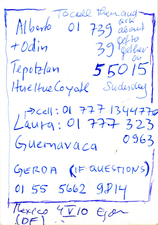 to call them and
ask
Alberto 01 739 about
+ Odin 39
Tepoztlan 55015
Huehue Coyotl
→ cell: 01 777 1344770
Laura: 01 777 323
Guernavaca 0963
GERDA (IF QUESTIONS)
01 55 5662 9814
Mexico 4 V 10
(DF)